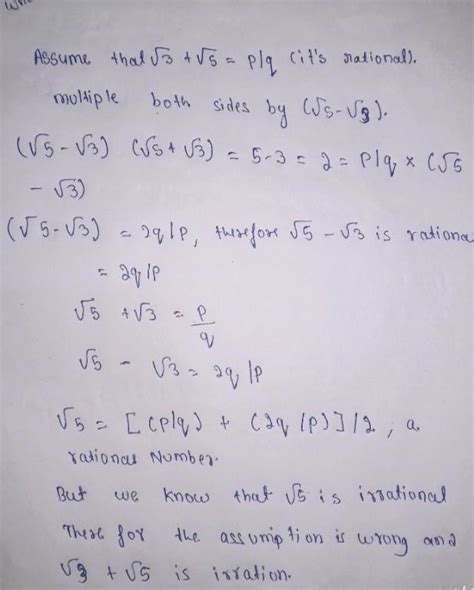 Assume that √3 + √5 = p/q (it's rational).
multiple both sides by (√5-√3).
(√5 - √3) (√5 + √3) = 5-3 = 2 = p/q × (√5
- √3)
(√5-√3) = 2q/p, therefore √5 - √3 is rationa
= 2q/p
√5 + √3 = p/q
√5 - √3 = 2q/p
√5 = [(p/q) + (2q/p)]/2, a
rational Number.
But we know that √5 is irrational
There for the assumption is wrong and
√3 + √5 is irration.